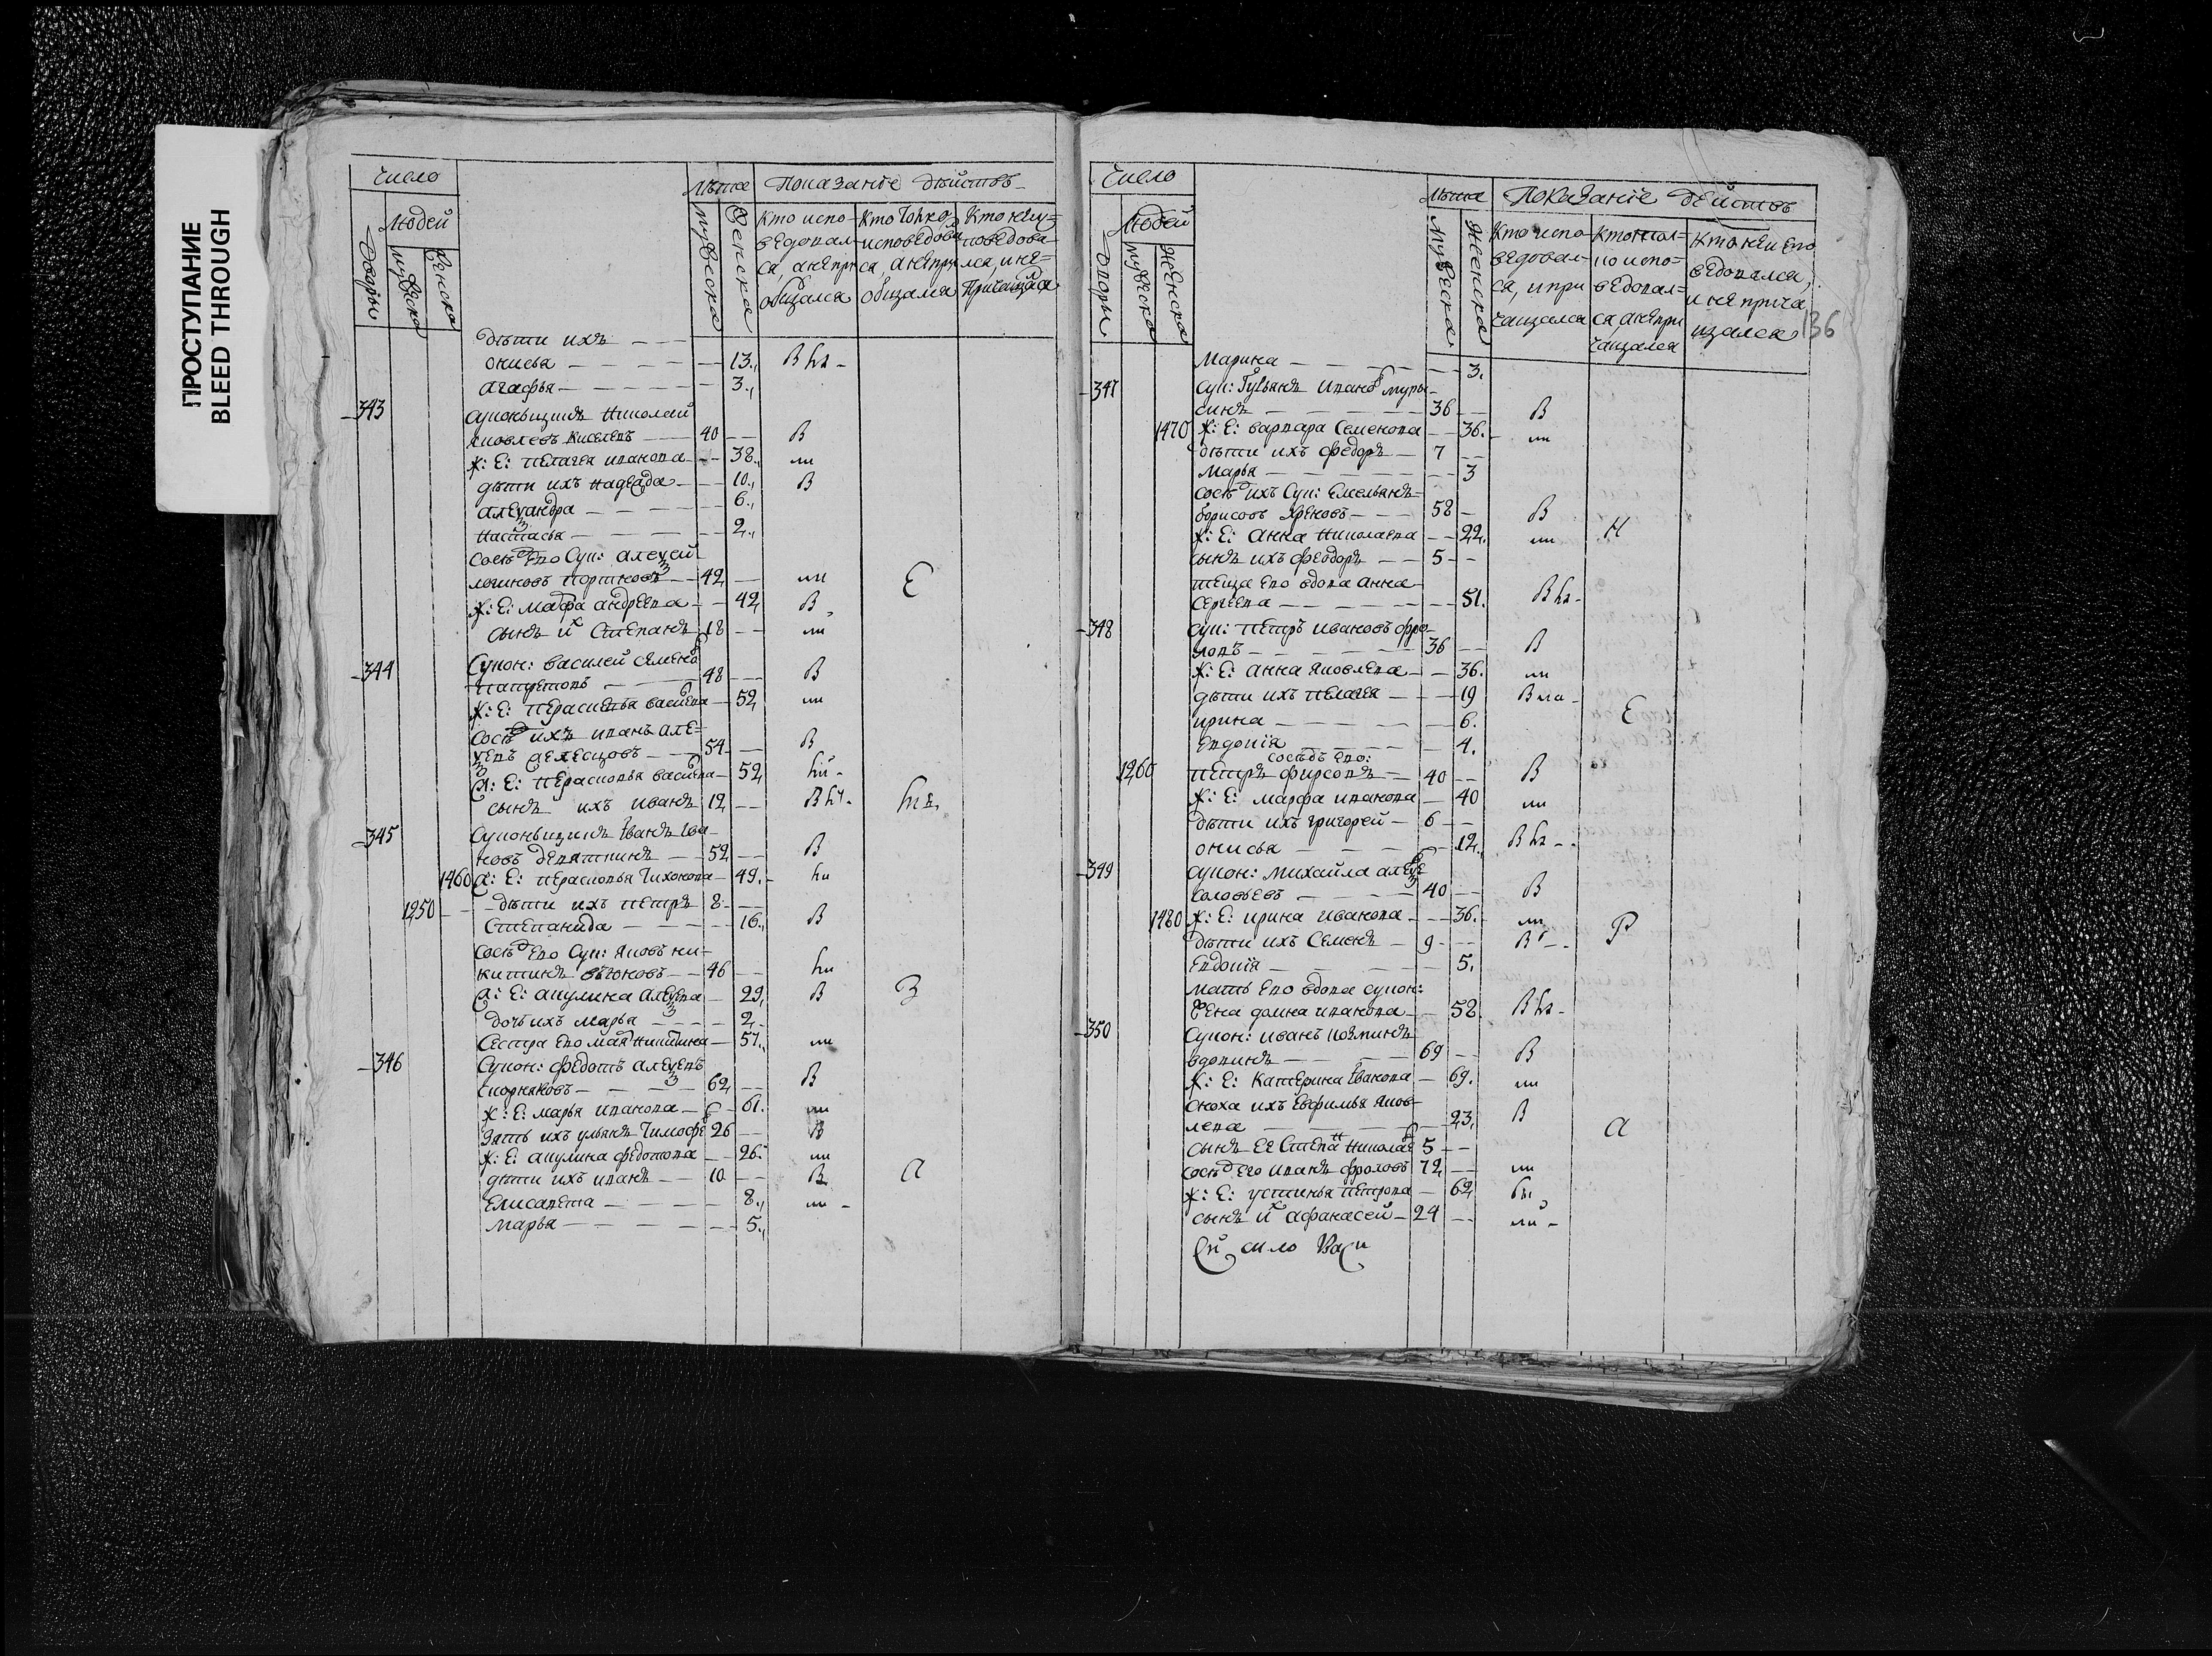 ПРОСТУПАНИЕ
BLEED THROUGH
число
лѣта
показанїе дѣйствъ
людей
Дворы
мужеска
женска
мужеска
женска
Кто испо-
ведовал-
са, а не при
общался
Кто только
исповедова
са, а не при
общался
Кто неис-
поведова
лся, и не-
причащался
дѣти ихъ
онисья 13. В
агафья 3.
343
суконьщикъ николай
яковлевъ киселевъ 40 В
ж: Е: пелагея иванова 38. ли
дѣти ихъ надежда 10. В
александра 6.
настасья 2.
сосѣд его сук: алексей
логиновъ портновъ 42 ли Е
ж: Е: марфа андреева 42 В
сынъ их степанъ 18 ли
344
сукон: василей семено
48 В
ж: Е: парасковья василева 52 ли
сосѣд ихъ иванъ але-
54 В
ж: Е: парасковья василева 52
сынъ ихъ иванъ 12
345
суконьщикъ иванъ ива-
новъ девяткинъ 52 В
1460 ж: Е: парасковья тихонова 49.
1250 дѣти ихъ петръ 8
степанида 16. В
сосѣд его сук: яковъ ни-
китинъ 46
ж: Е: акулина алексеева 29 В З
дочь ихъ марья 2
сестра его никитина 57. ли
346
сукон: федотъ алексеевъ
скорняковъ 62 В
ж: Е: марья иванова 61. ли
зять ихъ ульянъ тимофе 26 В
ж: Е: акулина федотова 26. ли
дѣти ихъ иванъ 10 В а
елисавета 8. ли
марья 5.
число
лѣта
Показанїе дѣйствъ
людей
дворы
мужеска
женска
мужеска
женска
Кто испо-
ведовал-
са, и при
чащался
Кто тол-
ко испо-
ведовал-
са, а не при
чащался
Кто не испо
ведовался,
и не прича
щался
136
марина 3.
347
сук:
36 В
1470 ж: Е: варвара семенова 36. ли
дѣти ихъ федоръ 7
марья 3
сосѣд ихъ сук: емельянъ
борисовъ хреновъ 58 В
ж: Е: анна николаева 22. ли Н
сынъ ихъ феодоръ 5
теща его вдова анна
сергеева 51. В
348
сук: петръ ивановъ фро-
ловъ 36 В
ж: Е: анна яковлева 36. ли
дѣти ихъ пелагея 19 В
ирина 6. Е
евдокїя 4.
сосѣдъ его:
1260 петръ фирсовъ 40 В
ж: Е: марфа иванова 40 ли
дѣти ихъ григорей 6
онисья 12. В
349
сукон: михайла алексе
соловьевъ 40 В
1480 ж: Е: ирина иванова 36. ли Р
дѣти ихъ семенъ 9 В
евдокїя 5.
мать его вдова сукон:
жена домна иванова 52. В
350
сукон: иванъ
вдовинъ 69 В
ж: Е: катерина иванова 69. ли
сноха ихъ евфимья яков-
лева 23. В а
сынъ ее степан николае 5
сосѣд его иванъ фроловъ 72 ли
ж: Е: устинья петрова 62
сынъ их афанасей 24 ли